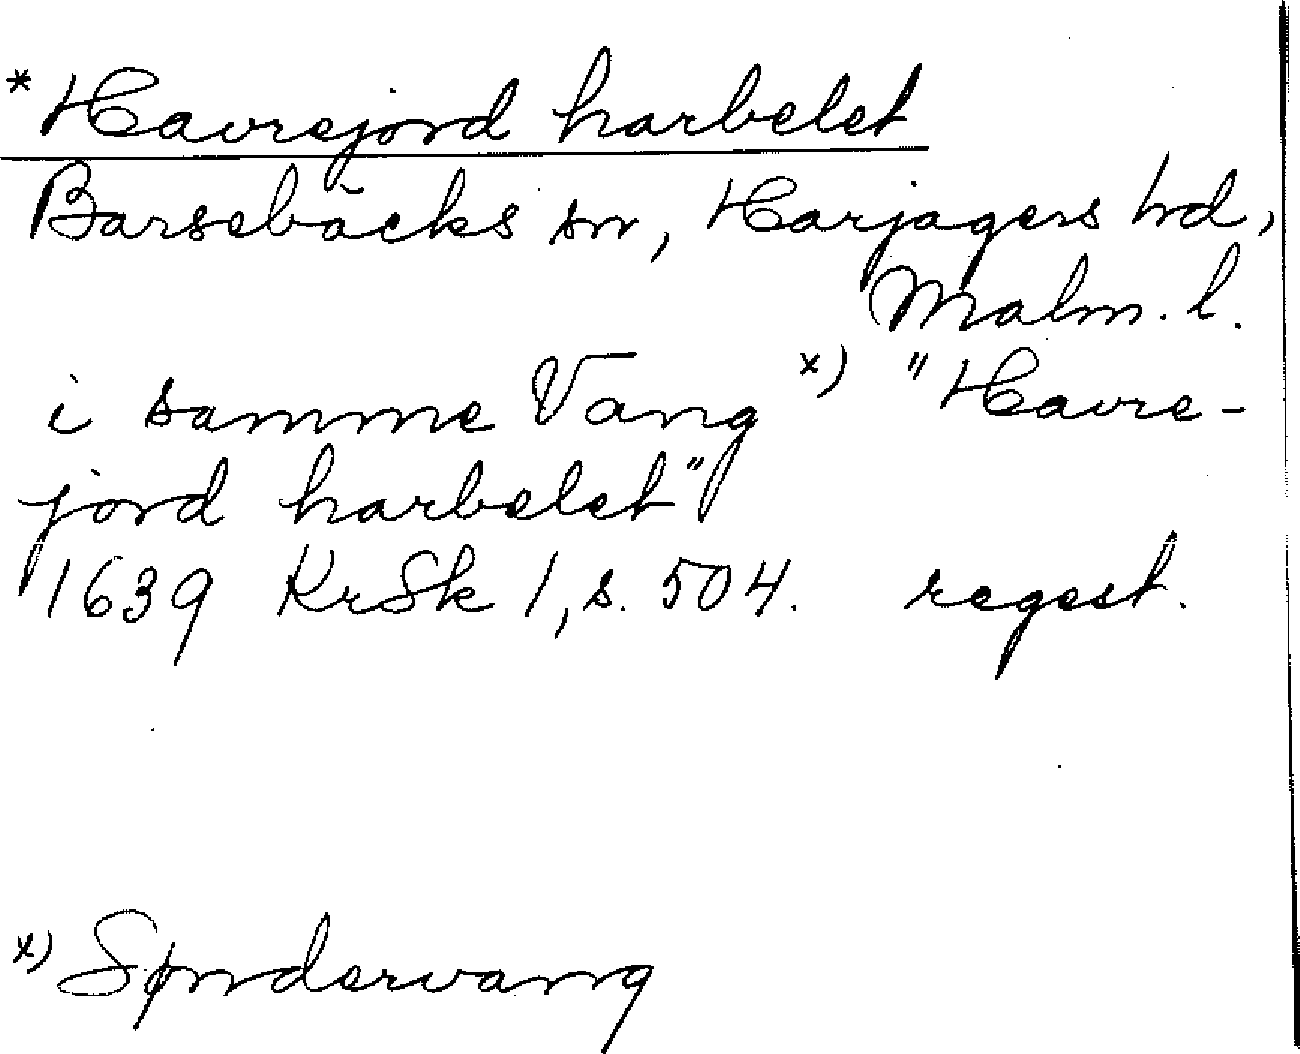 *Havrejord harbelet
Barsebäcks sn, Harjagers hd,
Malm. l.
i samme Vang x) "Havre-
jord harbelet"
1639 KrSk 1, s. 504. regest.
x) Søndervang